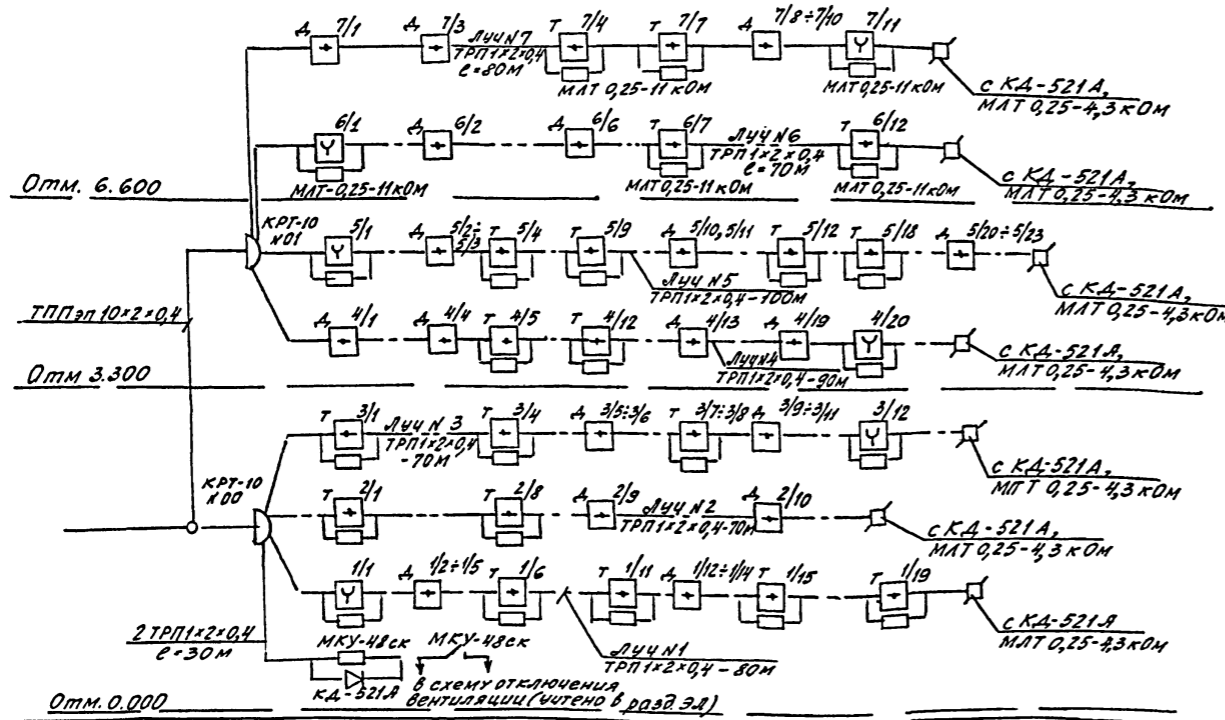 Д 7/1 Д 7/3 Луч N7 Т 7/4 Т 7/7 Д 7/8÷7/10 7/11
ТРП 1×2×0,4
ℓ=80м
МЛТ 0,25-11 кОм МЛТ 0,25-11 кОм
с КД-521А,
МЛТ 0,25-4,3 кОм
6/1 Д 6/2 Д 6/6 Т 6/7 Луч N6 Т 6/12
ТРП 1×2×0,4
ℓ=70м
МЛТ-0,25-11 кОм МЛТ 0,25-11 кОм МЛТ-0,25-11 кОм
с КД-521А,
МЛТ 0,25-4,3 кОм
Отм. 6.600
КРТ-10
N01
5/1 Д 5/2÷5/3 Т 5/4 Т 5/9 Д 5/10, 5/11 Т 5/12 Т 5/18 Д 5/20÷5/23
Луч N5
ТРП 1×2×0,4-100м
с КД-521А,
МЛТ 0,25-4,3 кОм
ТППэп 10×2×0,4
Д 4/1 Д 4/4 Т 4/5 Т 4/12 Д 4/13 Д 4/19 4/20
Луч N4
ТРП 1×2×0,4-90м
с КД-521А,
МЛТ 0,25-4,3 кОм
Отм 3.300
Т 3/1 Луч N 3 Т 3/4 Д 3/5÷3/6 Т 3/7÷3/8 Д 3/9÷3/11 3/12
ТРП 1×2×0,4
-70м
с КД-521А,
МЛТ 0,25-4,3 кОм
КРТ-10
N00
Т 2/1 Т 2/8 Д 2/9 Луч N2 Д 2/10
ТРП 1×2×0,4-70м
с КД-521А,
МЛТ 0,25-4,3 кОм
1/1 Д 1/2÷1/5 Т 1/6 Т 1/11 Д 1/12÷1/14 Т 1/15 Т 1/19
с КД-521А
МЛТ 0,25-4,3 кОм
2 ТРП 1×2×0,4
ℓ=30м
МКУ-48ск МКУ-48ск
Луч N1
ТРП 1×2×0,4-80м
КД-521А
в схему отключения
вентиляции (учтено в разд. ЭЛ)
Отм. 0.000